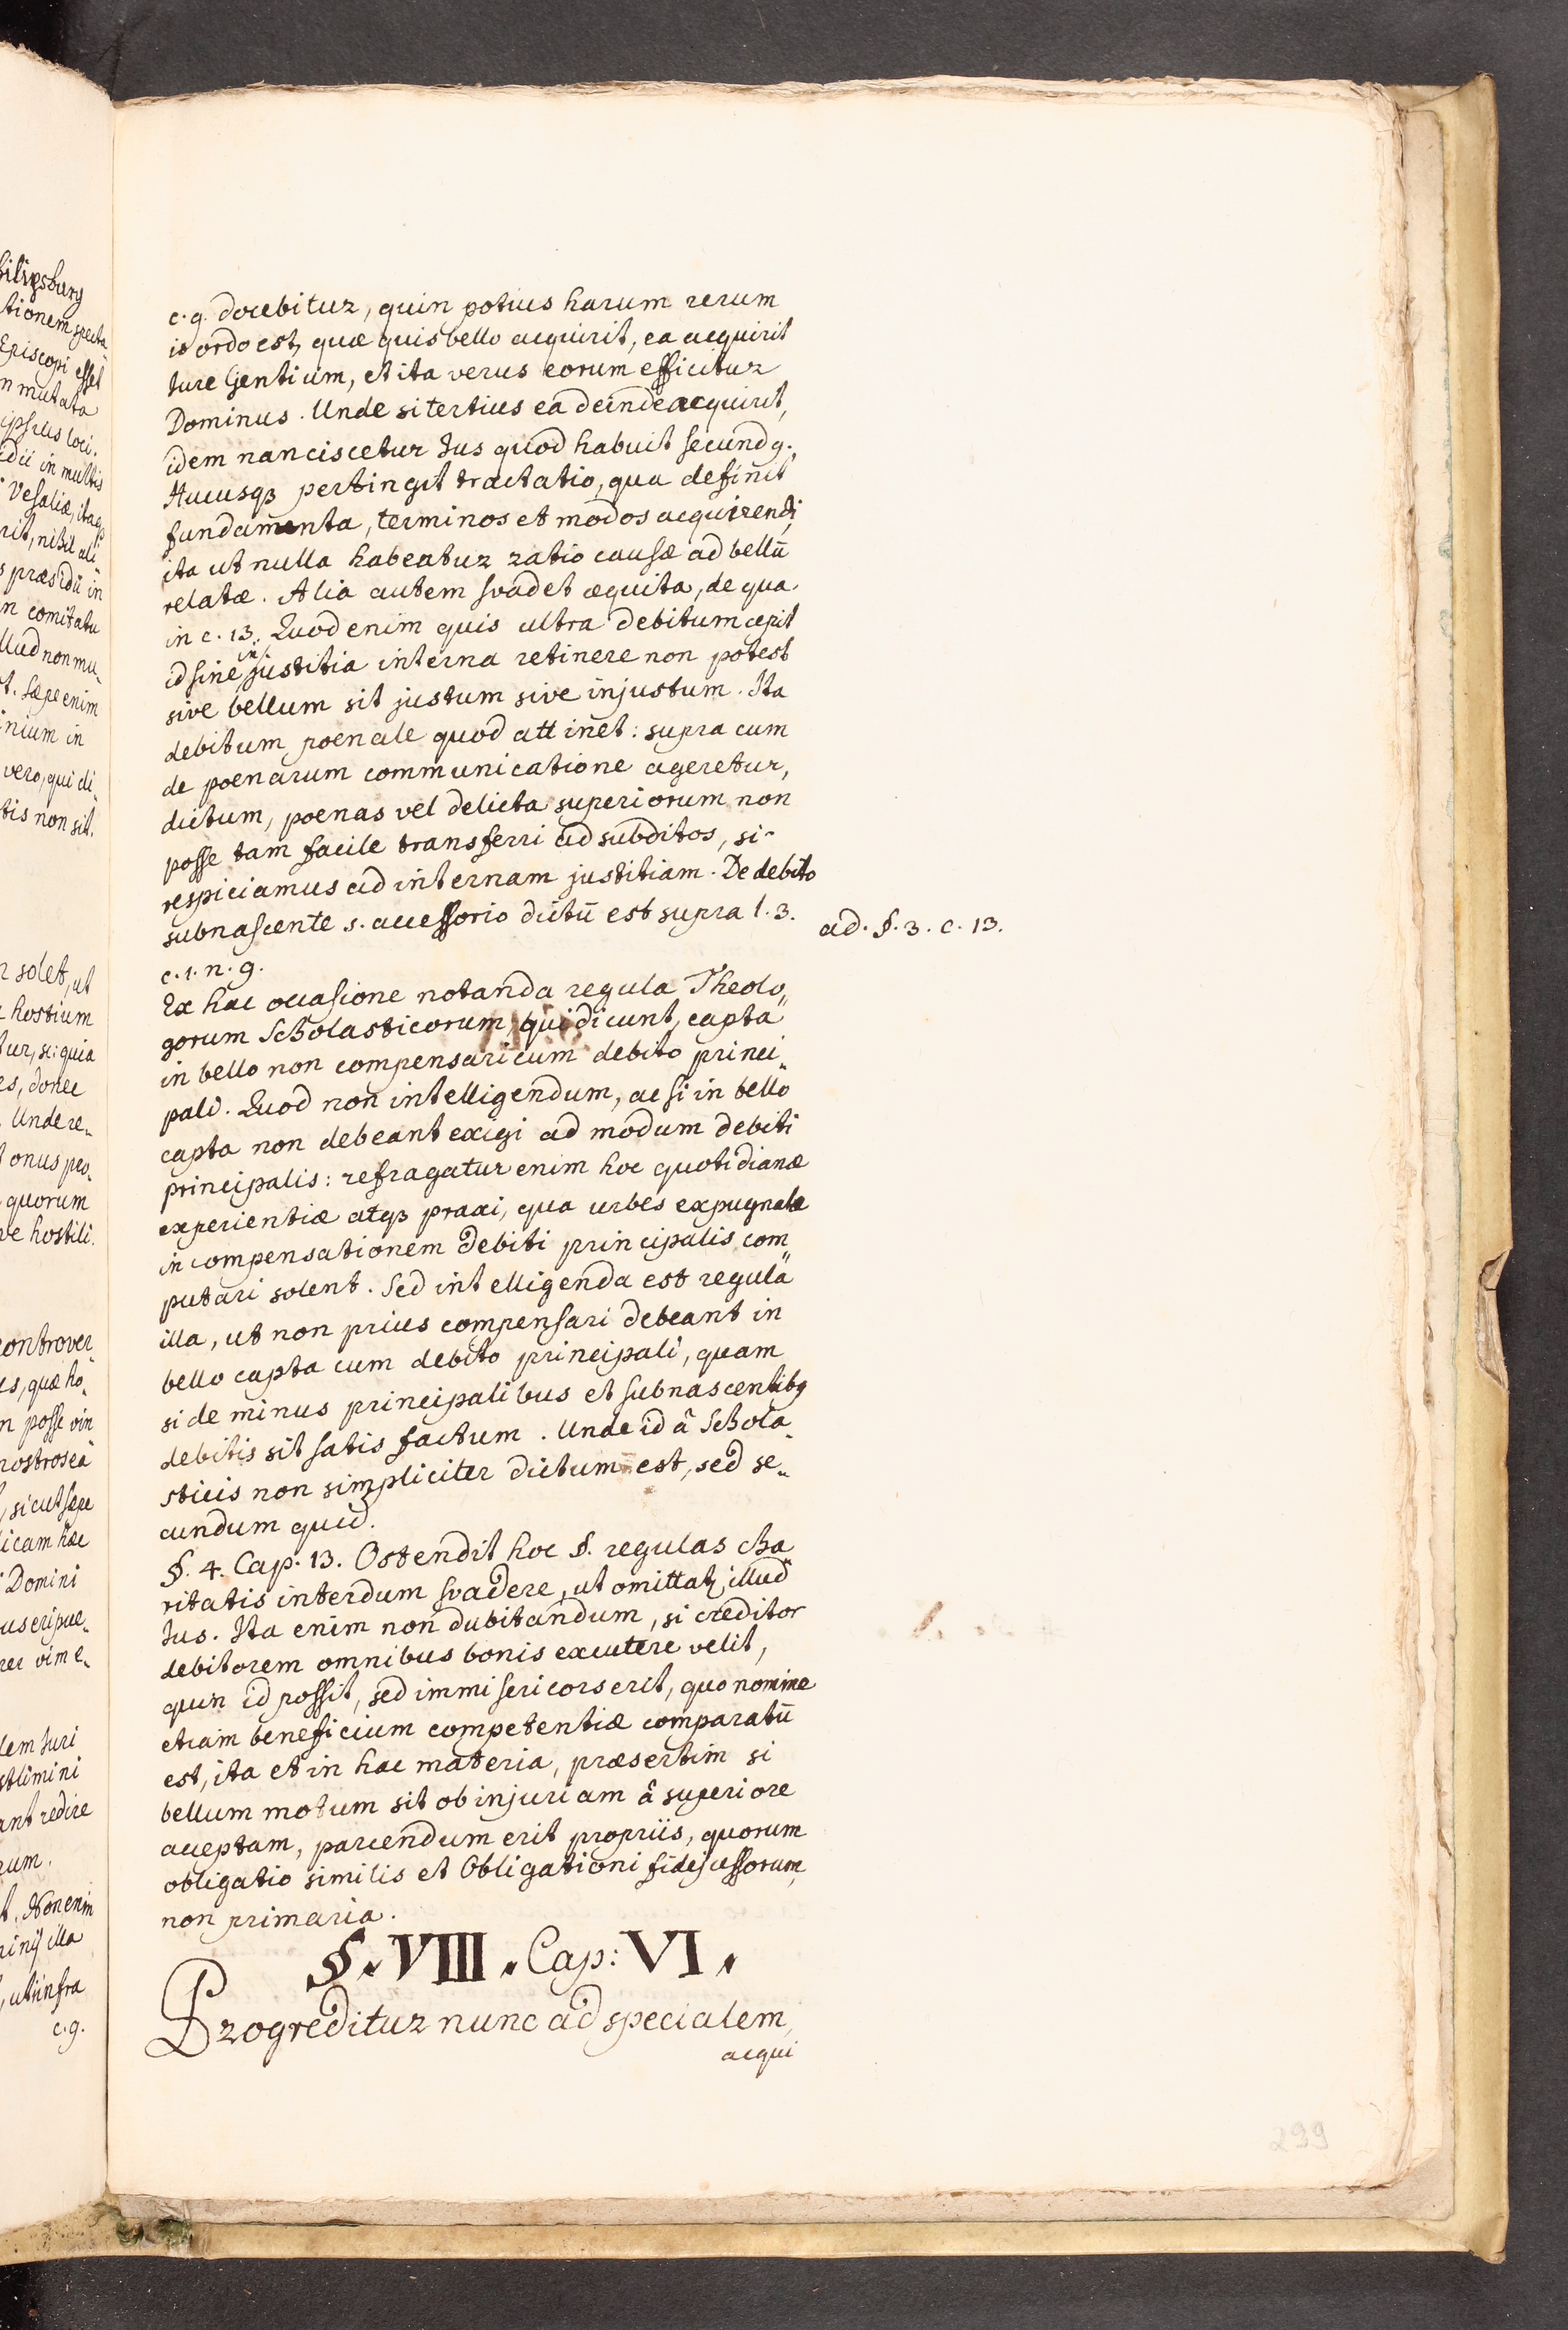 c. 9. docebitur, quin potius harum rerum
is ordo est, quæ quis bello acquirit, ea acquirit
Jure Gentium, et ita verus eorum efficitur
Dominus. Unde si tertius ea deinde acquirit,
idem nanciscetur Jus quod habuit secundg.
Hucusqȝ pertingit tractatio, qua definit
fundamenta, terminos et modos acquirendi,
ita ut nulla habeatur ratio causæ ad bellū
relatæ. Alia autem svadet æquita, de qua
in c. 13. Quod enim quis ultra debitum cepit
id sine injustitia interna retinere non potest
sive bellum sit justum sive injustum. Ita
debitum poenale quod attinet: supra cum
de poenarum communicatione ageretur,
dictum, poenas vel delicta superiorum non
posse tam facile transferri ad subditos, si
respiciamus ad internam justitiam. De debito
subnascente s. accessorio dictū est supra l. 3.
ad. §. 3. c. 13.
c. 1. n. 9.
Ex hac occasione notanda regula Theolo„
gorum Scholasticorum, qui dicunt, capta
in bello non compensari cum debito princi„
pali. Quod non intelligendum, ac si in bello
capta non debeant exigi ad modum debiti
principalis: refragatur enim hoc quotidianæ
experientiæ atqȝ praxi, qua urbes expugnatæ
in compensationem debiti principalis com„
putari solent. Sed intelligenda est regula
illa, ut non prius compensari debeant in
bello capta cum debito principali, quam
si de minus principalibus et subnascentibg
debitis sit satis factum. Unde id â Schola„
sticis non simpliciter dictum est, sed se„
cundum quid.
§. 4. Cap. 13. Ostendit hoc §. regulas cha„
ritatis interdum svadere, ut omittatꝫ illud
Jus. Ita enim non dubitandum, si creditor
debitorem omnibus bonis excutere velit,
quin id possit, sed immisericors erit, quo nomine
etiam beneficium competentiæ comparatū
est, ita et in hac materia, præsertim si
bellum motum sit ob injuriam â superiore
acceptam, parcendum erit propriis, quorum
obligatio similis et Obligationi fidejussorum,
non primaria.
§. VIII. Cap: VI.
Progreditur nunc ad specialem
acqui
299